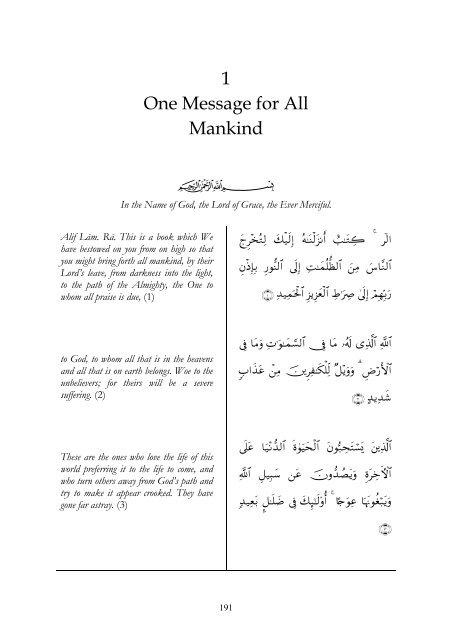 1
One Message for All
Mankind
بِسْمِ ٱللَّهِ ٱلرَّحْمَـٰنِ ٱلرَّحِيمِ
In the Name of God, the Lord of Grace, the Ever Merciful.
Alif Lām. Rā. This is a book which We
have bestowed on you from on high so that
you might bring forth all mankind, by their
Lord's leave, from darkness into the light,
to the path of the Almighty, the One to
whom all praise is due, (1)
الٓر ۚ كِتَـٰبٌ أَنزَلْنَـٰهُ إِلَيْكَ لِتُخْرِجَ
ٱلنَّاسَ مِنَ ٱلظُّلُمَـٰتِ إِلَى ٱلنُّورِ بِإِذْنِ
رَبِّهِمْ إِلَىٰ صِرَٰطِ ٱلْعَزِيزِ ٱلْحَمِيدِ ﴿١﴾
to God, to whom all that is in the heavens
and all that is on earth belongs. Woe to the
unbelievers; for theirs will be a severe
suffering. (2)
ٱللَّهِ ٱلَّذِى لَهُۥ مَا فِى ٱلسَّمَـٰوَٰتِ وَمَا فِى
ٱلْأَرْضِ ۗ وَوَيْلٌ لِّلْكَـٰفِرِينَ مِنْ عَذَابٍ
شَدِيدٍ ﴿٢﴾
These are the ones who love the life of this
world preferring it to the life to come, and
who turn others away from God's path and
try to make it appear crooked. They have
gone far astray. (3)
ٱلَّذِينَ يَسْتَحِبُّونَ ٱلْحَيَوٰةَ ٱلدُّنْيَا عَلَى
ٱلْـَٔاخِرَةِ وَيَصُدُّونَ عَن سَبِيلِ ٱللَّهِ
وَيَبْغُونَهَا عِوَجًا ۚ أُو۟لَـٰٓئِكَ فِى ضَلَـٰلٍۭ بَعِيدٍ
﴿٣﴾
191